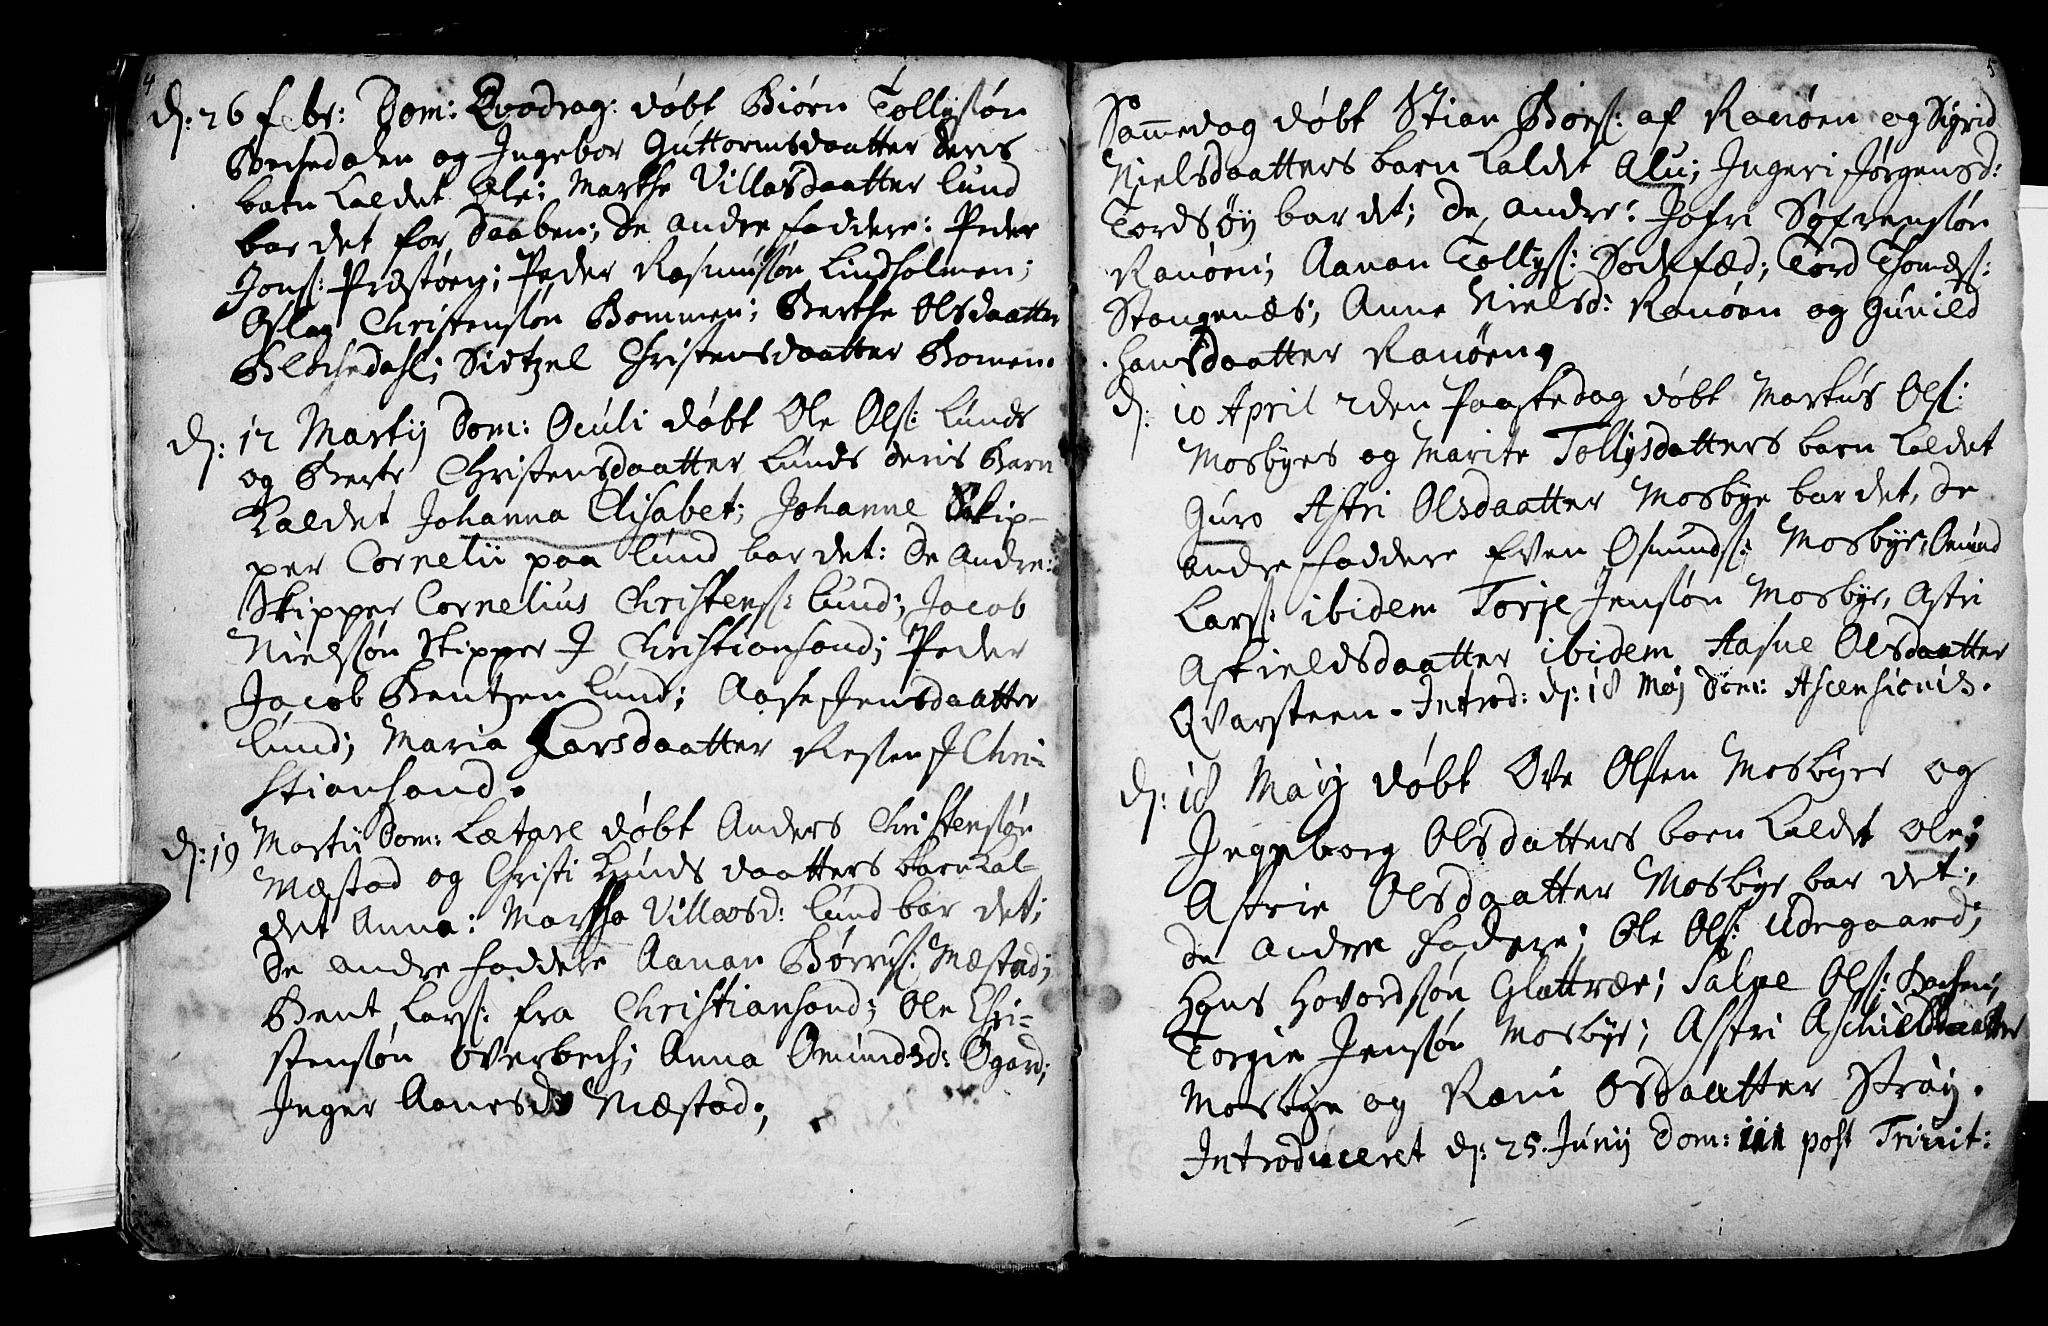 4
d: 26 febr: Dom: Qvadrag: døbt Biørn Tollysøn
Bechedalen og Ingebor Guttormsdaatter deris
barn kaldet Ole; Marthe Villasdaatter Lund
bar det for Daaben; de andre faddere: Peder
Jons: Prestøen; Peder Rasmusøn Lindholmen;
Aslag Christensøn Bommen; Berthe Olsdaatter
Bechedahl; Sidtzel Christensdaatter Bomen.
d: 12 Martij Dom: Oculi døbt Ole Ols: Lunds
og Berte Christensdaatter Lunds deris Barn
kaldet Johanna Elisabet; Johanne Skip-
per Cornelii paa Lund bar det: de Andre:
Skipper Cornelius Christens: Lund; Jacob
Nielssøn Skipper J Christiansand; Peder
Jacob Bentzen Lund; Aase Jensdaatter
Lund; Maria Larsdaatter Resten J Chri-
stiansand.
d: 19 Martii Dom: Lætare døbt Anders Christensøn
Mæstad og Christi Knuds daatters barn kal-
det Anna: Martha Villaosd: Lund bar det;
De andre faddere Aanan Børrys: Mæstad;
Bent Lars: fra Christiansand; Ole Chri-
stensøn Overbech; Anna Omundsd: Øgard;
Inger Aanesd Mæstad;
5
Sammedag døbt Stian Børs: af Randøen og Sigrid
Nielsdaatters barn kaldet Alu; Ingeri Jørgensd:
Tordsøy bar det; de andre: Johri Søfrensøn
Randøen; Aanan Tollys: Sodefæd; Tord Thomæs:
Stangenes; Anne Nielsd: Randøen og Gunild
Hansdaatter Randøen.
d: 10 April 2den Paaskedag døbt Markus Ols:
Mosbyes og Marite Tollysdatters barn kaldet
Guro Astri Olsdaatter Mosbye bar det, de
andre faddere Even Osmunds: Mosbye; Omund
Lars: ibidem Torje Jensøn Mosbye, Astri
Askieldsdaatter ibidem Aasne Olsdaatter
Qvarsteen. Introd: d: 18 Maj Dom: Ascensionis.
d: 18 Maij døbt Ove Olsen Mosbyes og
Ingeborg Olsdatters barn kaldet Ole;
Astrie Olsdaatter Mosbye bar det;
de andre faddere; Ole Ols: Udegaard;
Hans Hovordssøn Glattræe; Salve Ols:
Torgie Jensøn Mosbye; Astri Aschieldsdaatter
Mosbye og Rani Osdaatter Strøy.
Introduceret d: 25 Junij Dom: III post Trinit: